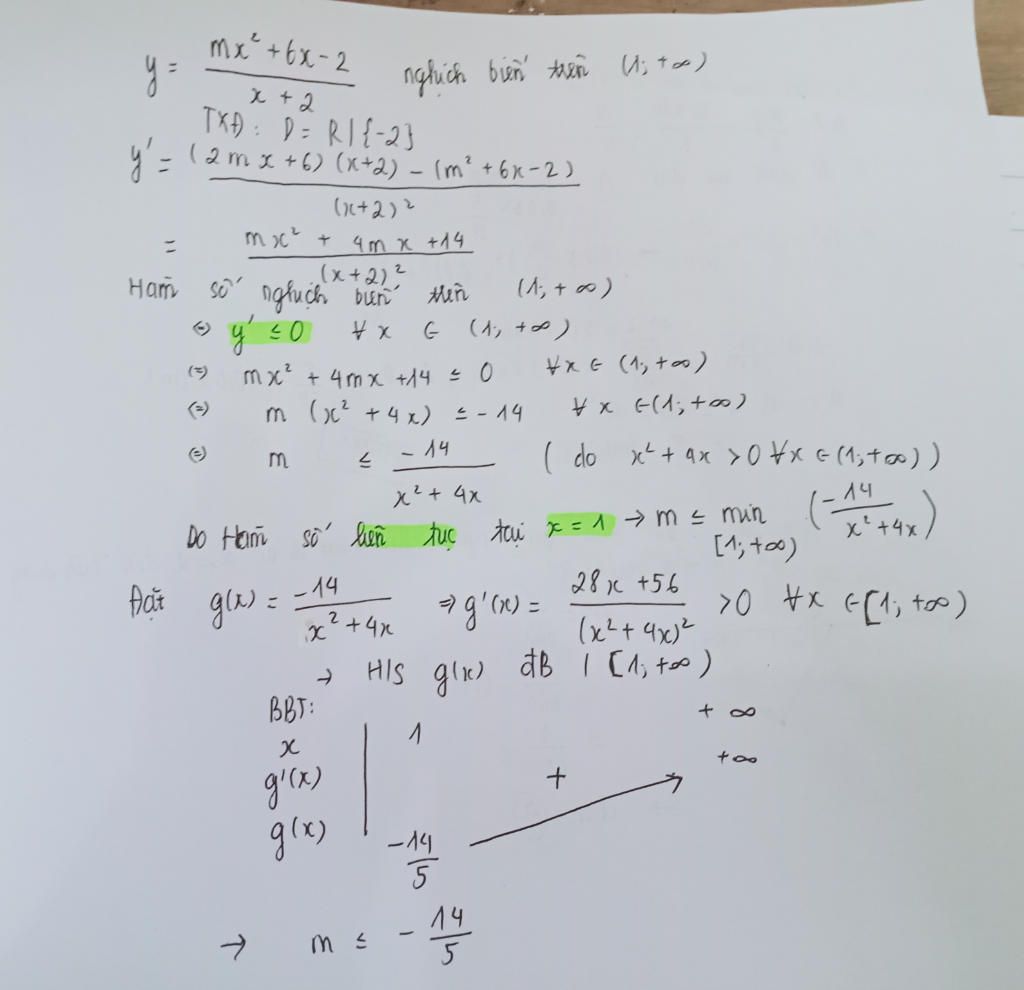 y = (mx² + 6x - 2)/(x + 2) nghịch biến trên (1; +∞)
TXĐ: D = R | {-2}
y' = ((2mx + 6)(x+2) - (m² + 6x - 2))/(x+2)²
= (mx² + 4mx + 14)/(x+2)²
Hàm số nghịch biến trên (1; +∞)
⇔ y' ≤ 0 ∀x ∈ (1; +∞)
⇔ mx² + 4mx + 14 ≤ 0 ∀x ∈ (1; +∞)
⇔ m (x² + 4x) ≤ -14 ∀x ∈ (1; +∞)
⇔ m ≤ -14/(x² + 4x) (do x² + 4x > 0 ∀x ∈ (1; +∞))
Do Hàm số liên tục tại x = 1 → m ≤ min [1; +∞) (-14/(x² + 4x))
Đặt g(x) = -14/(x² + 4x) ⇒ g'(x) = (28x + 56)/(x² + 4x)² > 0 ∀x ∈ [1; +∞)
→ H/S g(x) đB / [1; +∞)
BBT:
x 1 +∞
g'(x) + +∞
g(x) -14/5
→ m ≤ -14/5